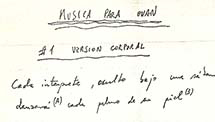 MUSICA PARA OVAN
#1 VERSION CORPORAL
Cada intérprete, oculto bajo una sában
danzará (A) cada plano de su piel (B)